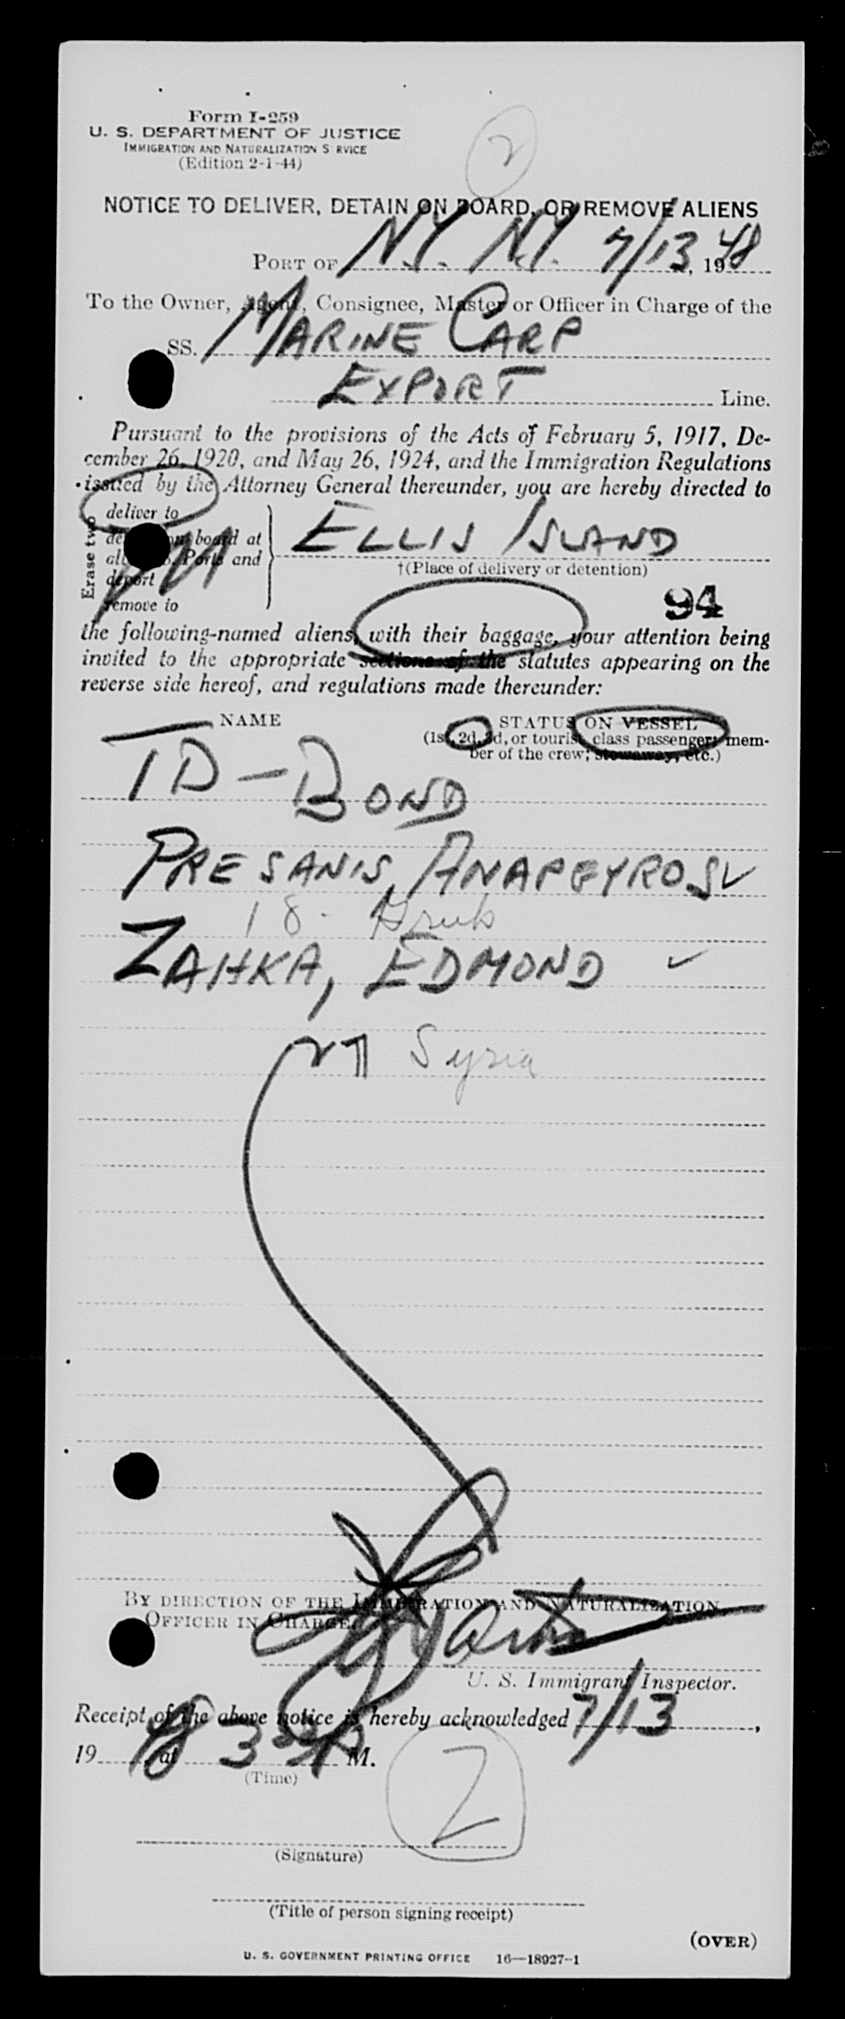 Form I-259
U. S. DEPARTMENT OF JUSTICE
IMMIGRATION AND NATURALIZATION SERVICE
(Edition 2-1-44)
2
NOTICE TO DELIVER, DETAIN ON BOARD, OR REMOVE ALIENS
PORT OF N.Y. N.Y. 7/13, 1948
To the Owner, Agent, Consignee, Master or Officer in Charge of the
SS. MARINE CARP
EXPORT Line.
Pursuant to the provisions of the Acts of February 5, 1917, De-
cember 26, 1920, and May 26, 1924, and the Immigration Regulations
issued by the Attorney General thereunder, you are hereby directed to
Erase two
deliver to
on board at
Ports and
deport
remove to
ELLIS ISLAND
†(Place of delivery or detention)
94
the following-named aliens, with their baggage, your attention being
invited to the appropriate sections of the statutes appearing on the
reverse side hereof, and regulations made thereunder:
NAME
STATUS ON VESSEL
(1st, 2d, 3d, or tourist class passenger; mem-
ber of the crew; stowaway, etc.)
TD - BOND
PRESANIS, ANAPGYROS ✓
18.
ZAHKA, EDMOND ✓
Syria
BY DIRECTION OF THE IMMIGRATION AND NATURALIZATION
OFFICER IN CHARGE.
U. S. Immigrant Inspector.
Receipt of the above notice is hereby acknowledged 7/13,
1948 at 3 M.
(Time)
2
(Signature)
(Title of person signing receipt)
(OVER)
U. S. GOVERNMENT PRINTING OFFICE 16—18927-1